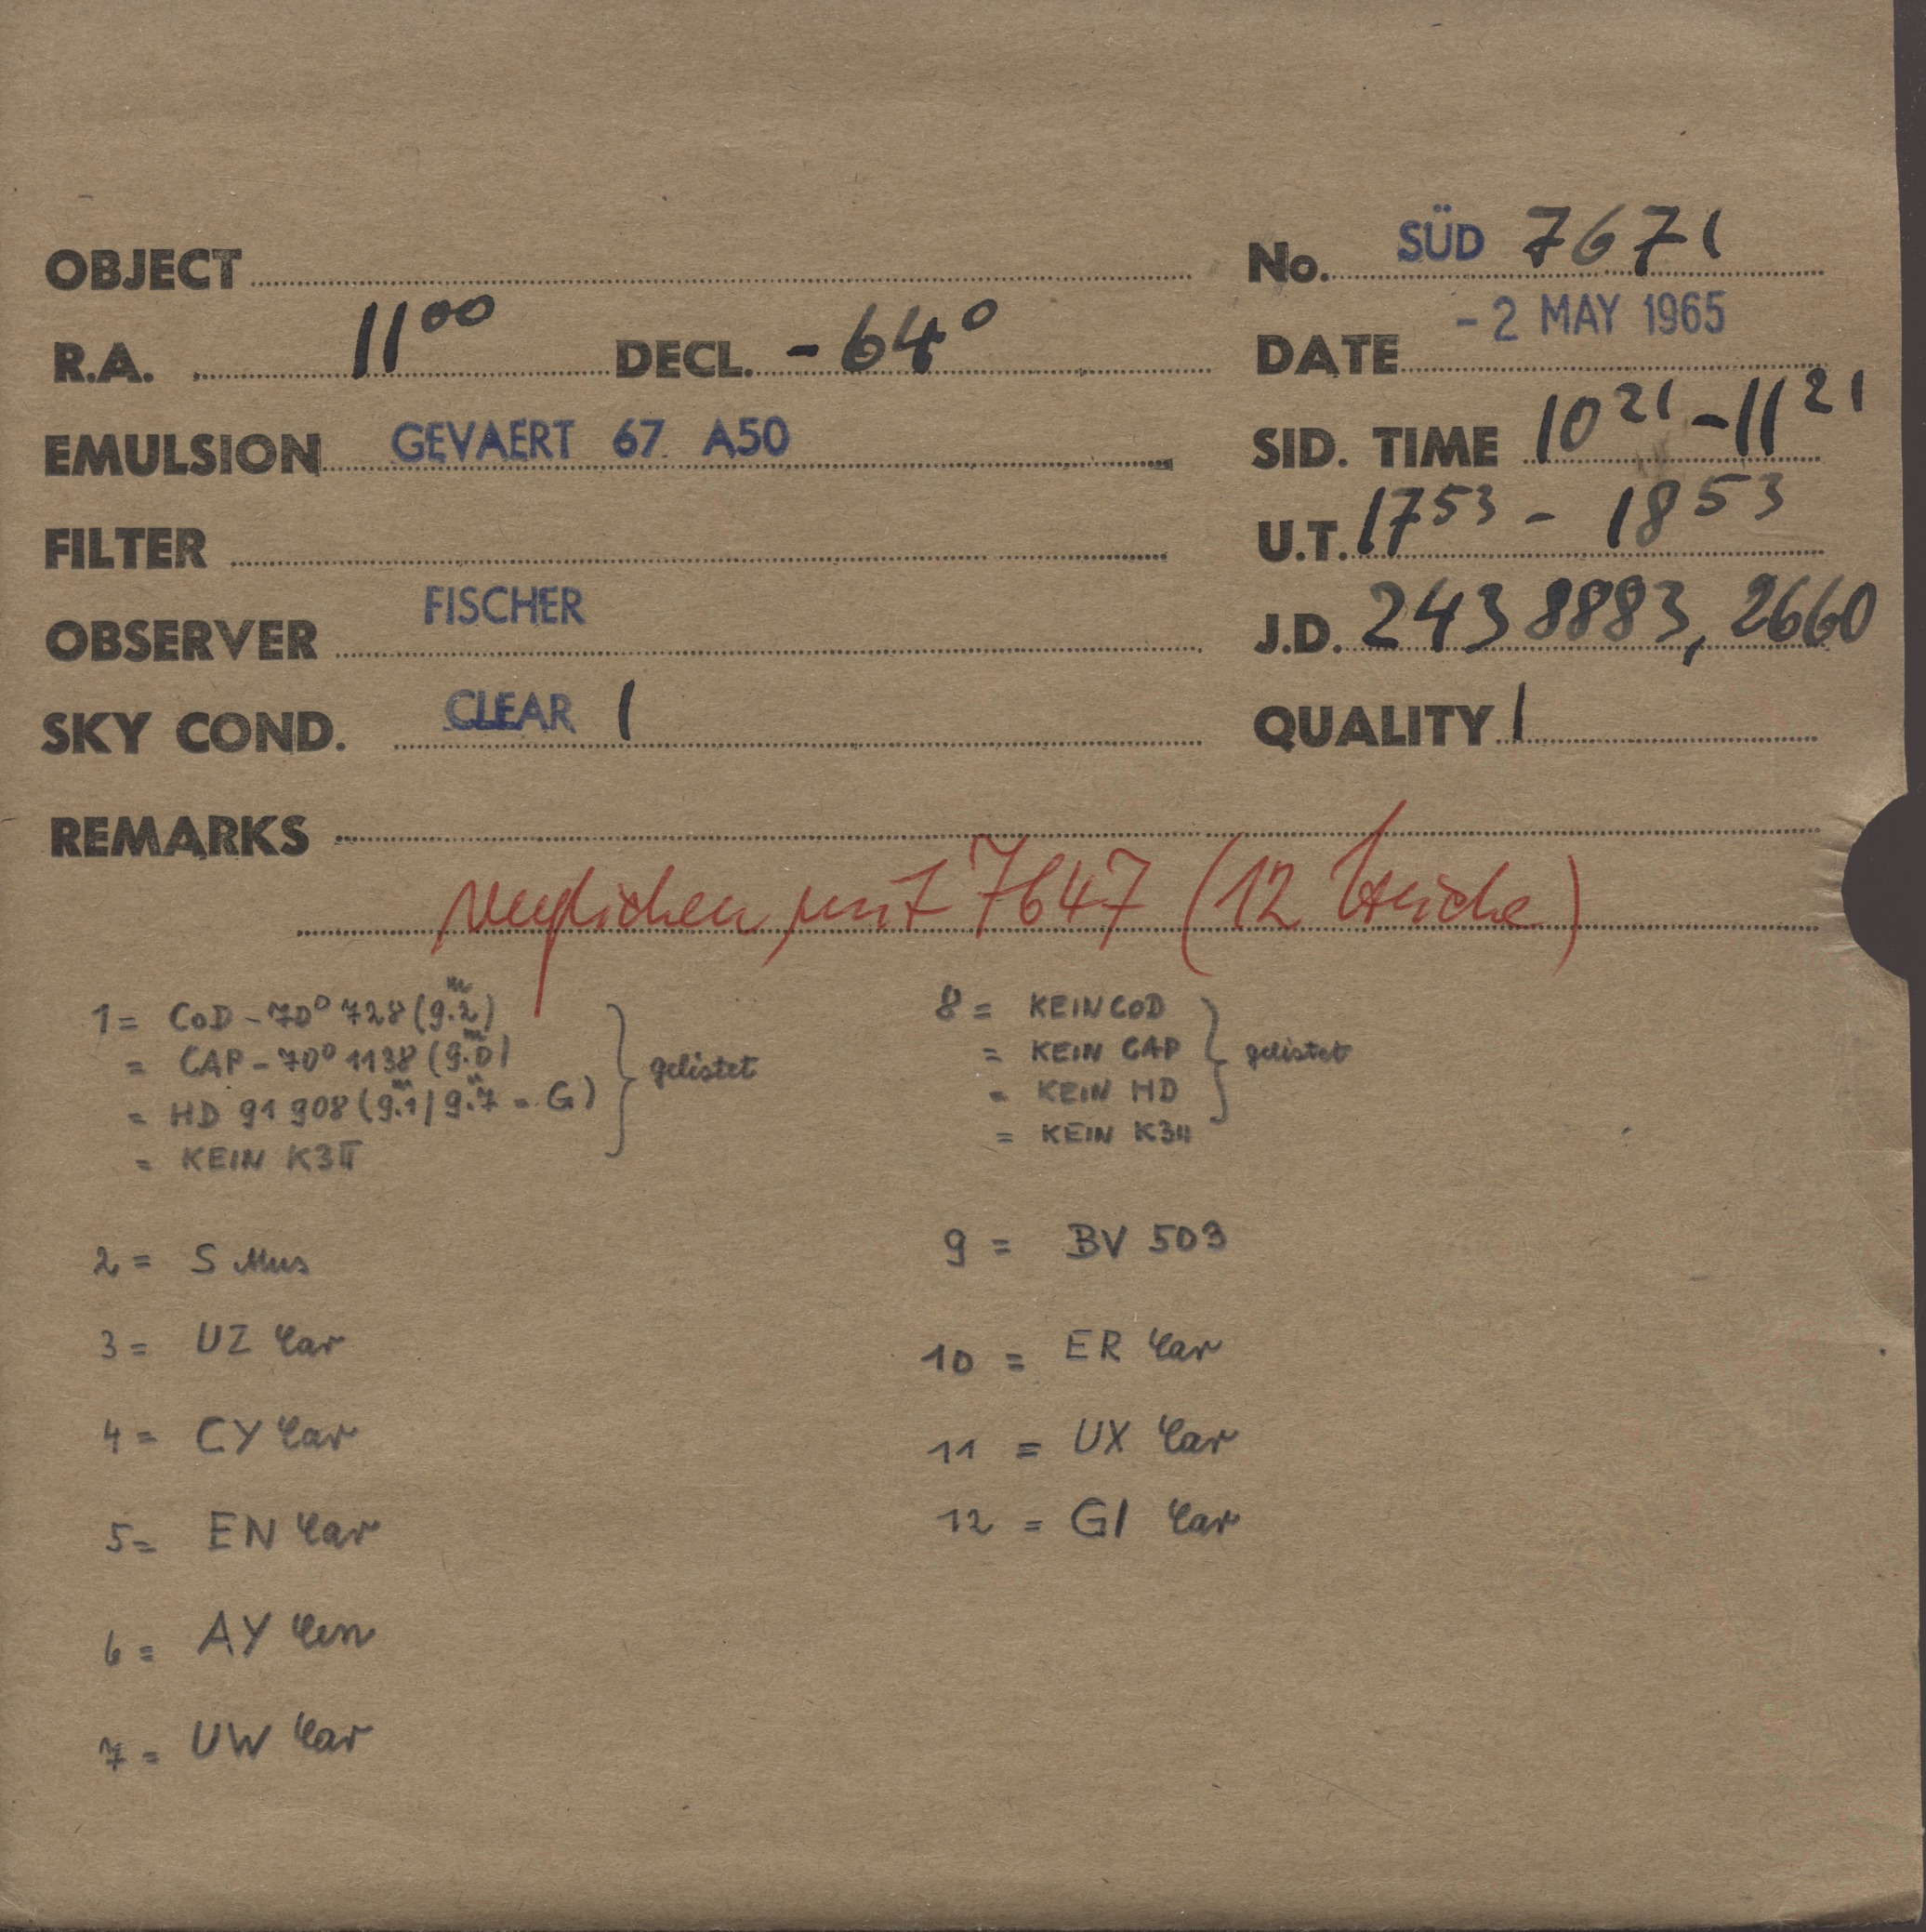 OBJECT
No. SÜD 7671
R.A. 11⁰⁰ DECL. -64°
DATE - 2 MAY 1965
EMULSION GEVAERT 67 A50
SID. TIME 10²¹ - 11²¹
FILTER
U.T. 17⁵³ - 18⁵³
OBSERVER FISCHER
J.D. 243 8883, 2660
SKY COND. CLEAR 1
QUALITY 1
REMARKS
verglichen mit 7647 (12 Striche)
1 = CoD -70° 728 (9.ᵐ2)
= CAP -70° 1138 (9.ᵐ0)
= HD 91 908 (9.ᵐ1 / 9.ᵐ7 - G)
= KEIN K3II
gelistet
2 = S Mus
3 = UZ Car
4 = CY Car
5 = EN Car
6 = AY Cen
7 = UW Car
8 = KEIN COD
= KEIN CAP
= KEIN HD
= KEIN K3II
gelistet
9 = BV 503
10 = ER Car
11 = UX Car
12 = GI Car